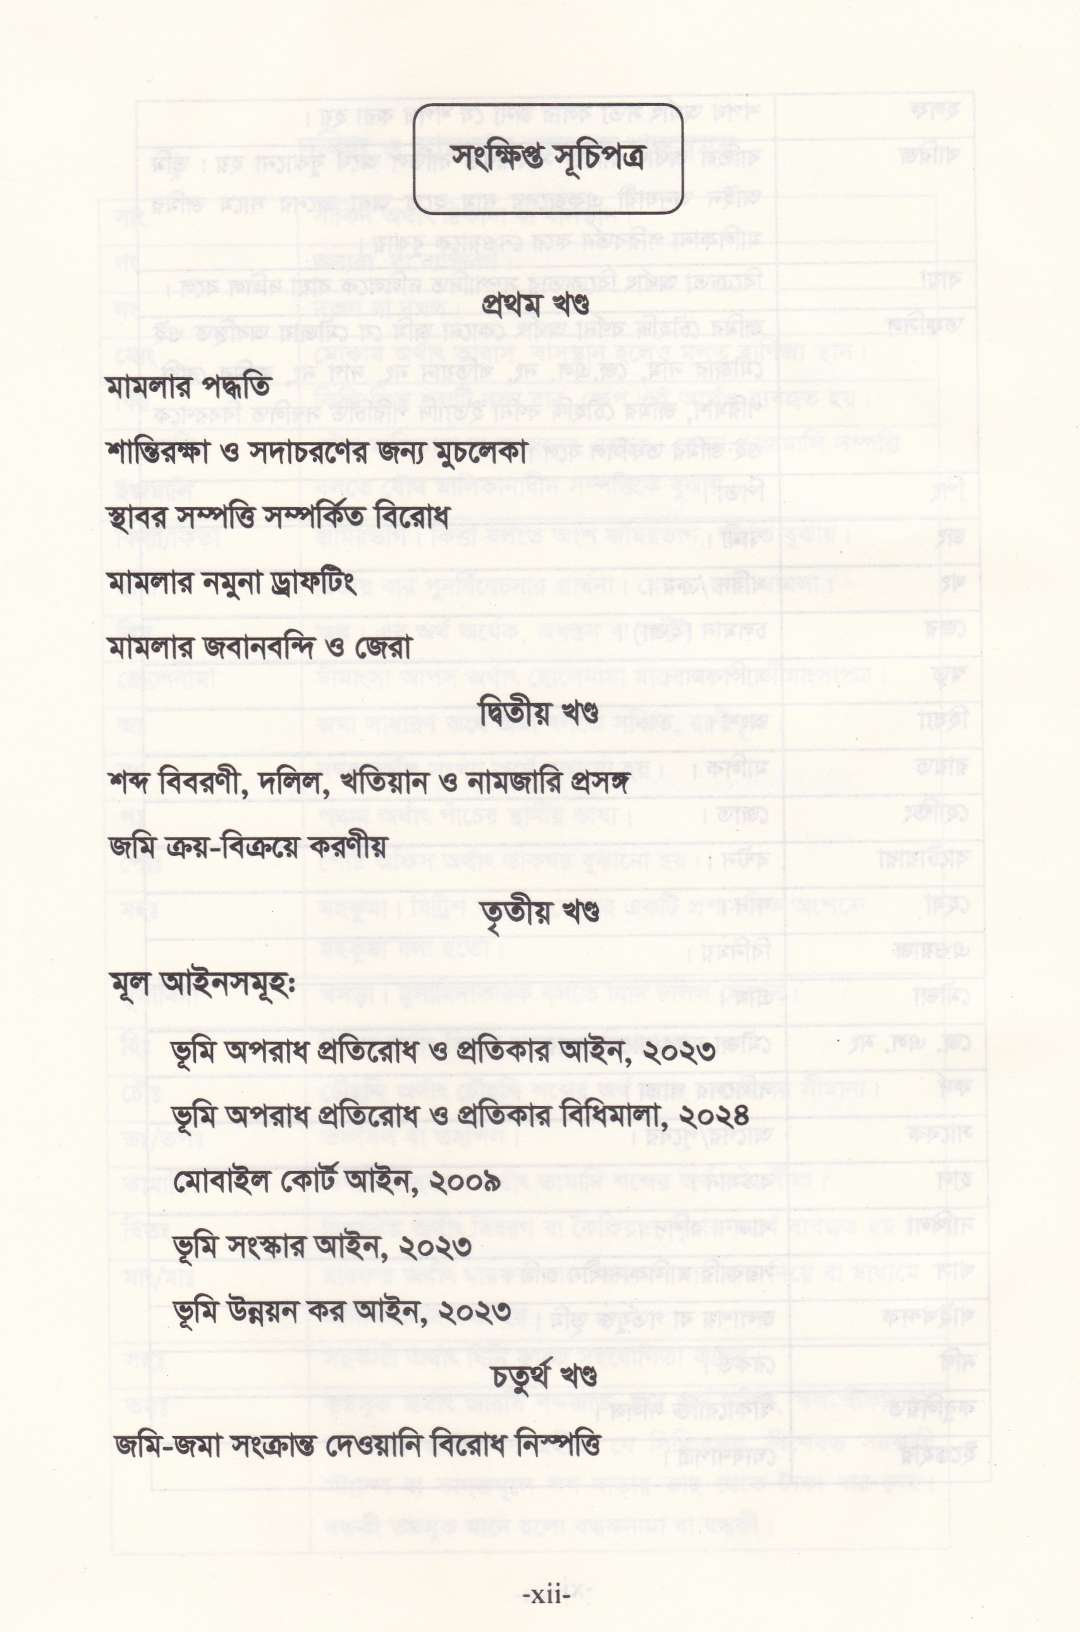 সংক্ষিপ্ত সূচিপত্র
প্রথম খণ্ড
মামলার পদ্ধতি
শান্তিরক্ষা ও সদাচরণের জন্য মুচলেকা
স্থাবর সম্পত্তি সম্পর্কিত বিরোধ
মামলার নমুনা ড্রাফটিং
মামলার জবানবন্দি ও জেরা
দ্বিতীয় খণ্ড
শব্দ বিবরণী, দলিল, খতিয়ান ও নামজারি প্রসঙ্গ
জমি ক্রয়-বিক্রয়ে করণীয়
তৃতীয় খণ্ড
মূল আইনসমূহ:
ভূমি অপরাধ প্রতিরোধ ও প্রতিকার আইন, ২০২৩
ভূমি অপরাধ প্রতিরোধ ও প্রতিকার বিধিমালা, ২০২৪
মোবাইল কোর্ট আইন, ২০০৯
ভূমি সংস্কার আইন, ২০২৩
ভূমি উন্নয়ন কর আইন, ২০২৩
চতুর্থ খণ্ড
জমি-জমা সংক্রান্ত দেওয়ানি বিরোধ নিস্পত্তি
-xii-